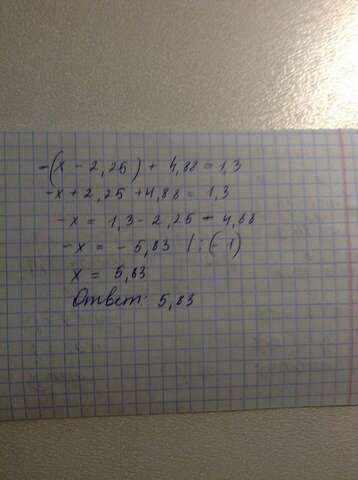 -(x - 2,25) + 4,88 = 1,3
-x + 2,25 + 4,88 = 1,3
-x = 1,3 - 2,25 - 4,88
-x = - 5,83 / : (- 1)
x = 5,83
Ответ: 5,83